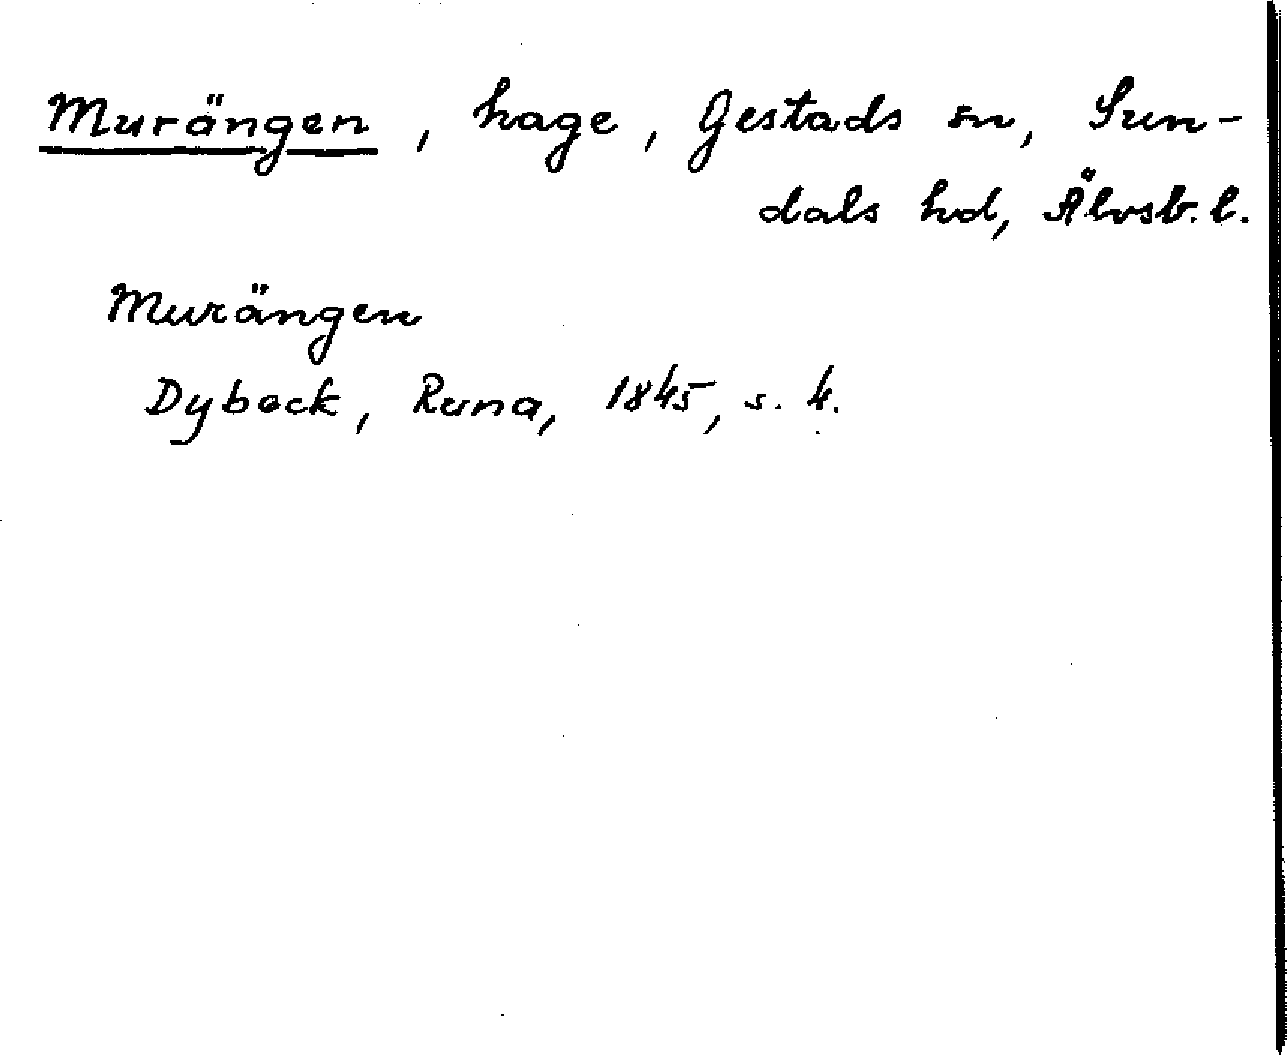 Murängen, hage, Gestads sn, Sun-
dals hd, Älvsb. l.
Murängen
Dybeck, Runa, 1845, s. 4.